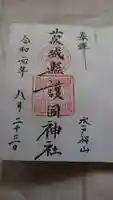 奉拝
水戸桜山
茨城縣護國神社
令和元年八月二十三日